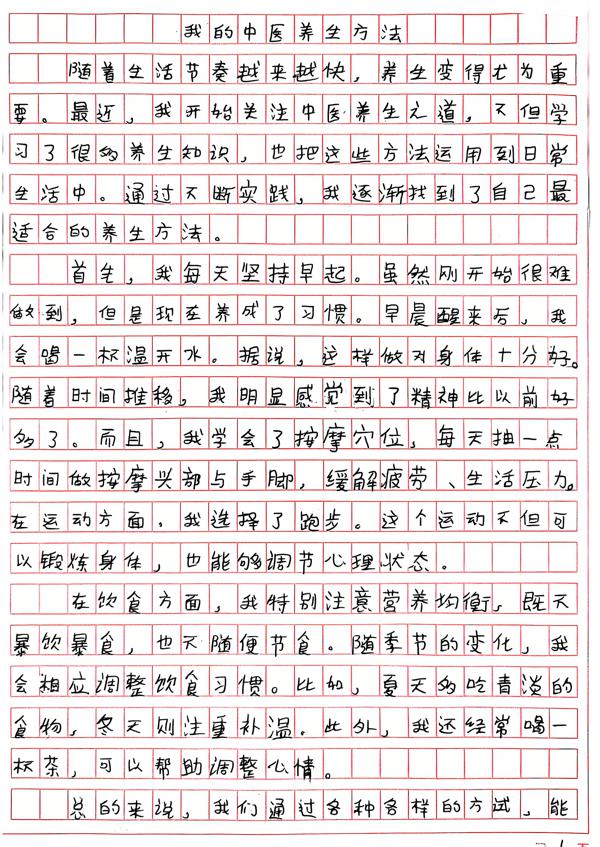 我的中医养生方法
随着生活节奏越来越快，养生变得尤为重
要。最近，我开始关注中医养生之道，不但学
习了很多养生知识，也把这些方法运用到日常
生活中。通过不断实践，我逐渐找到了自己最
适合的养生方法。
首先，我每天坚持早起。虽然刚开始很难
做到，但是现在养成了习惯。早晨醒来后，我
会喝一杯温开水。据说，这样做对身体十分好。
随着时间推移，我明显感觉到了精神比以前好
多了。而且，我学会了按摩穴位，每天抽一点
时间做按摩头部与手脚，缓解疲劳、生活压力。
在运动方面，我选择了跑步。这个运动不但可
以锻炼身体，也能够调节心理状态。
在饮食方面，我特别注意营养均衡，既不
暴饮暴食，也不随便节食。随季节的变化，我
会相应调整饮食习惯。比如，夏天多吃青淡的
食物，冬天则注重补温。此外，我还经常喝一
杯茶，可以帮助调整心情。
总的来说，我们通过各种各样的方试，能